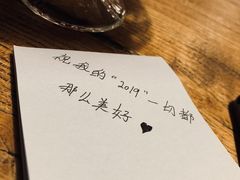 祝我的“2019”一切都
那么美好